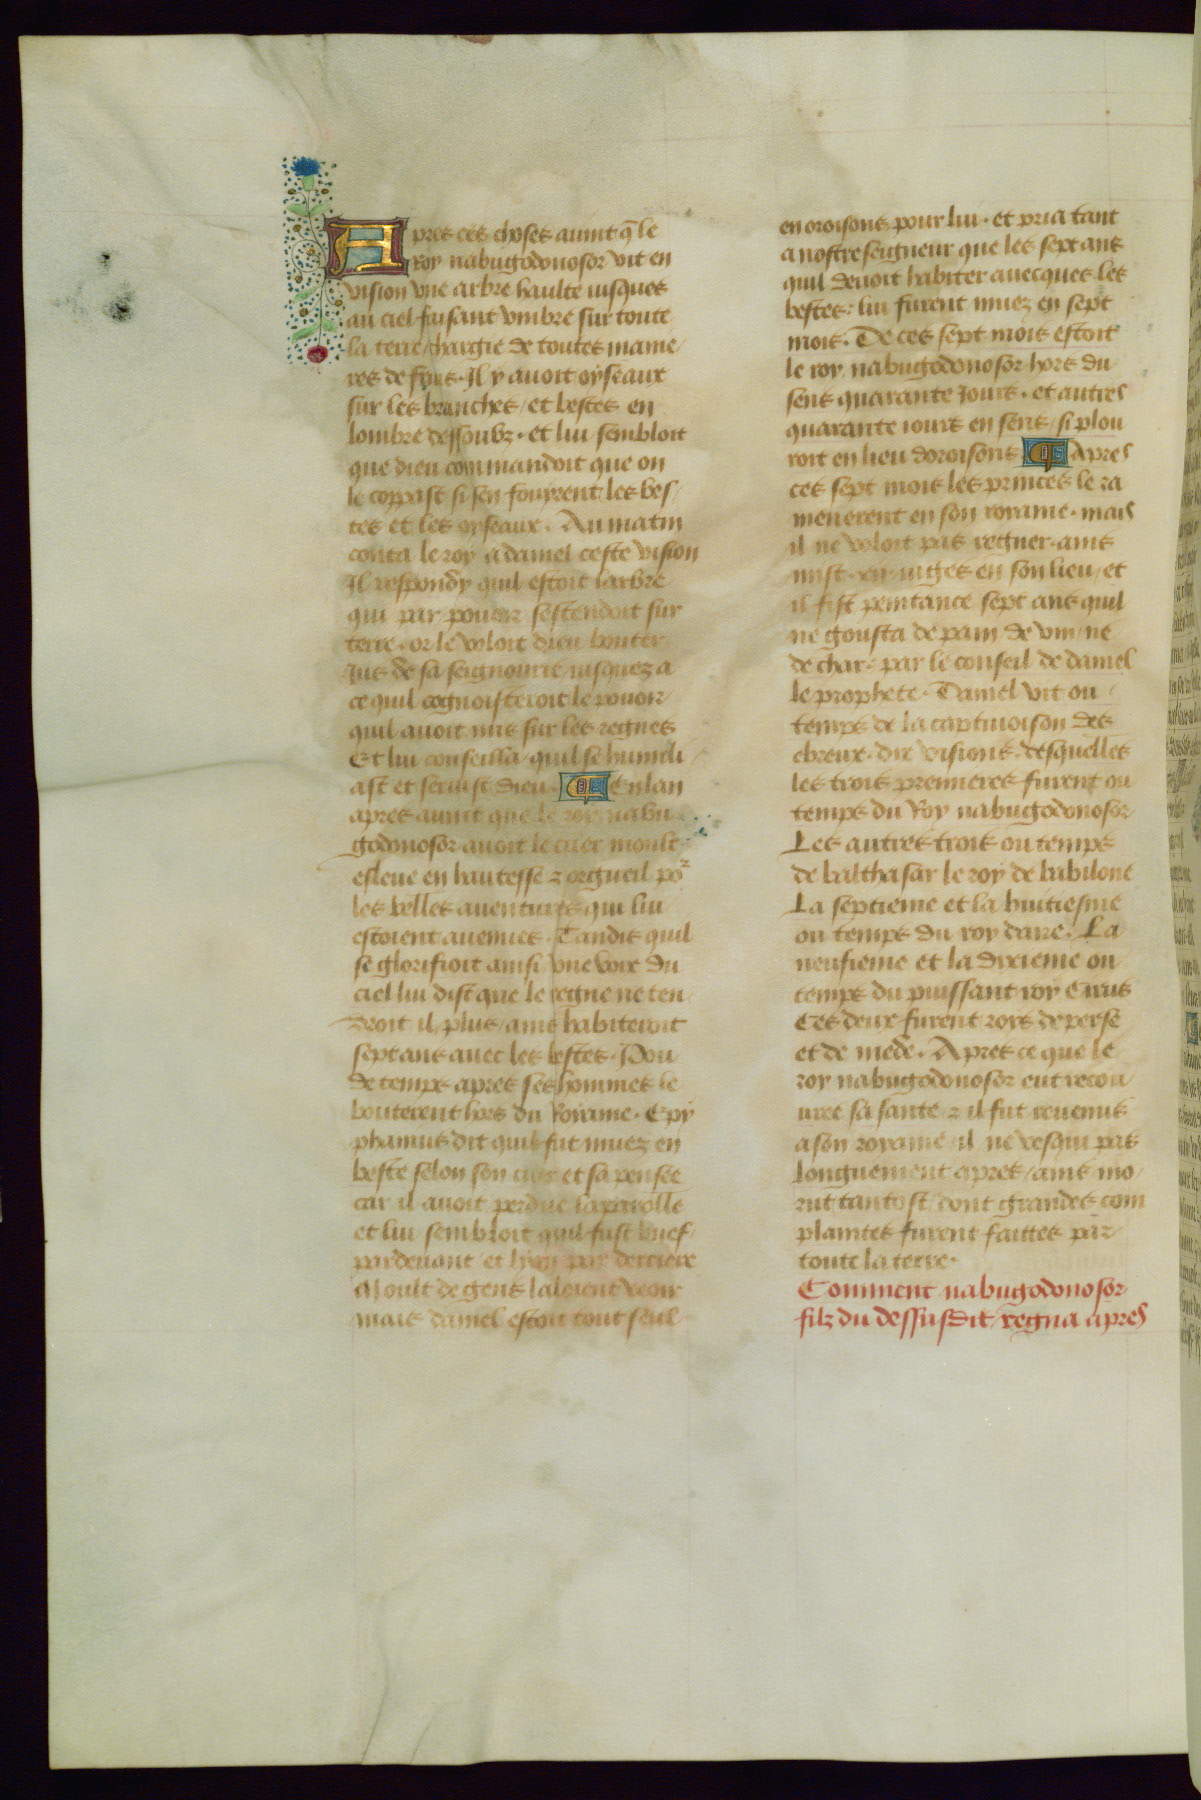 Apres ces choses auint q̃ le
roy nabugodonosor vit en
vision vne arbre haulte iusques
au ciel faisant vmbre sur toute
la terre / chargie de toutes manie
res de fruis. Il y auoit oyseaux
sur les branches / et bestes en
lombre dessoubz. et lui sembloit
que dieu commandoit que on
le coppast si sen fouyrent les bes
tes et les oyseaux. Au matin
conta le roy a daniel ceste vision
Il respondy quil estoit larbre
qui par pouoir sestendoit sur
terre. or le voloit dieu bouter
jus de sa seignourie iusquez a
ce quil cognoisteroit le pouoir
quil auoit mis sur les regnes
Et lui conseilla quil se humili
ast et seruist dieu. En lan
apres auint que le roy nabu
godonosor auoit le cuer moult
esleue en haultesse ⁊ orgueil po᷑
les belles auentures qui lui
estoient auenues. Tandis quil
se glorifioit ainsi vne voix du
ciel lui dist que le regne ne ten
droit il plus / ains habiteroit
sept ans auec les bestes. Pou
de temps apres ses hommes le
bouterent hors du royame. Epy
phanius dit quil fut muez en
beste selon son cuer et sa pensee
car il auoit perdue la parolle
et lui sembloit quil fust buef
par deuant et lyon par derriere
Moult de gens laloient veoir
mais daniel estoit tout seul
en oroisons pour lui. et pria tant
a nostre seigneur que les sept ans
quil deuoit habiter auecques les
bestes: lui furent muez en sept
mois. De ces sept mois estoit
le roy nabugodonosor hors du
sens quarante jours. et autres
quarante iours en sens / si plou
roit en lieu doroisons Apres
ces sept mois les princes le ra
menerent en son royame. mais
il ne voloit pas regner. ains
mist iuges en son lieu / et
il fist penitance sept ans quil
ne gousta de pain de vin / ne
de char. par le conseil de daniel
le prophete. Daniel vit ou
temps de la captiuoison des
ebreux. dix visions. desquelles
les trois premieres furent ou
temps du Roy nabugodonosor
Les autres trois ou temps
de balthasar le roy de babilone
La septieme et la huitiesme
ou temps du roy daire. La
neufieme et la dixieme ou
temps du puissant roy Cirus
Ces deux furent roys de perse
et de mede. Apres ce que le
roy nabugodonosor eut recou
uree sa sante ⁊ il fut reuenus
a son royame / il ne vesqui pas
longuement apres / ains mo
rut tantost / dont grandes com
plaintes furent faittes par
toute la terre.
Comment nabugodonosor
filz du dessusdit / regna apres